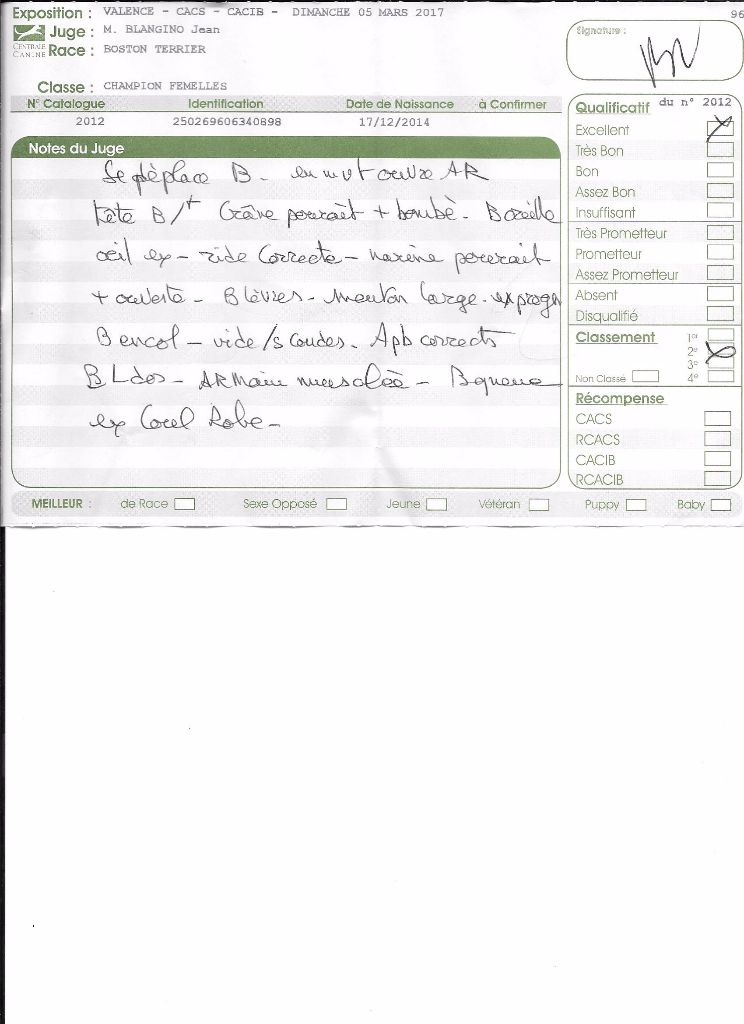 Exposition : VALENCE - CACS - CACIB - DIMANCHE 05 MARS 2017
96
CENTRALE CANINE
Juge : M. BLANGINO Jean
Race : BOSTON TERRIER
Signature :
Classe : CHAMPION FEMELLES
N° Catalogue Identification Date de Naissance à Confirmer
2012 250269606340898 17/12/2014
Notes du Juge
Se déplace B. en mvt ouvre AR
tête B/+ Crâne pourrait + bombé. B oreille
oeil ex - ride Correcte - narine pourrait
+ ouverte - B lèvres - menton large. ex progn
B encol - vide /s coudes. Apb corrects
B L dos - AR Main musclée - B queue
ex Coul Robe -
Qualificatif du n° 2012
Excellent
Très Bon
Bon
Assez Bon
Insuffisant
Très Prometteur
Prometteur
Assez Prometteur
Absent
Disqualifié
Classement 1er
2e
3e
Non Classé 4e
Récompense
CACS
RCACS
CACIB
RCACIB
MEILLEUR : de Race Sexe Opposé Jeune Vétéran Puppy Baby